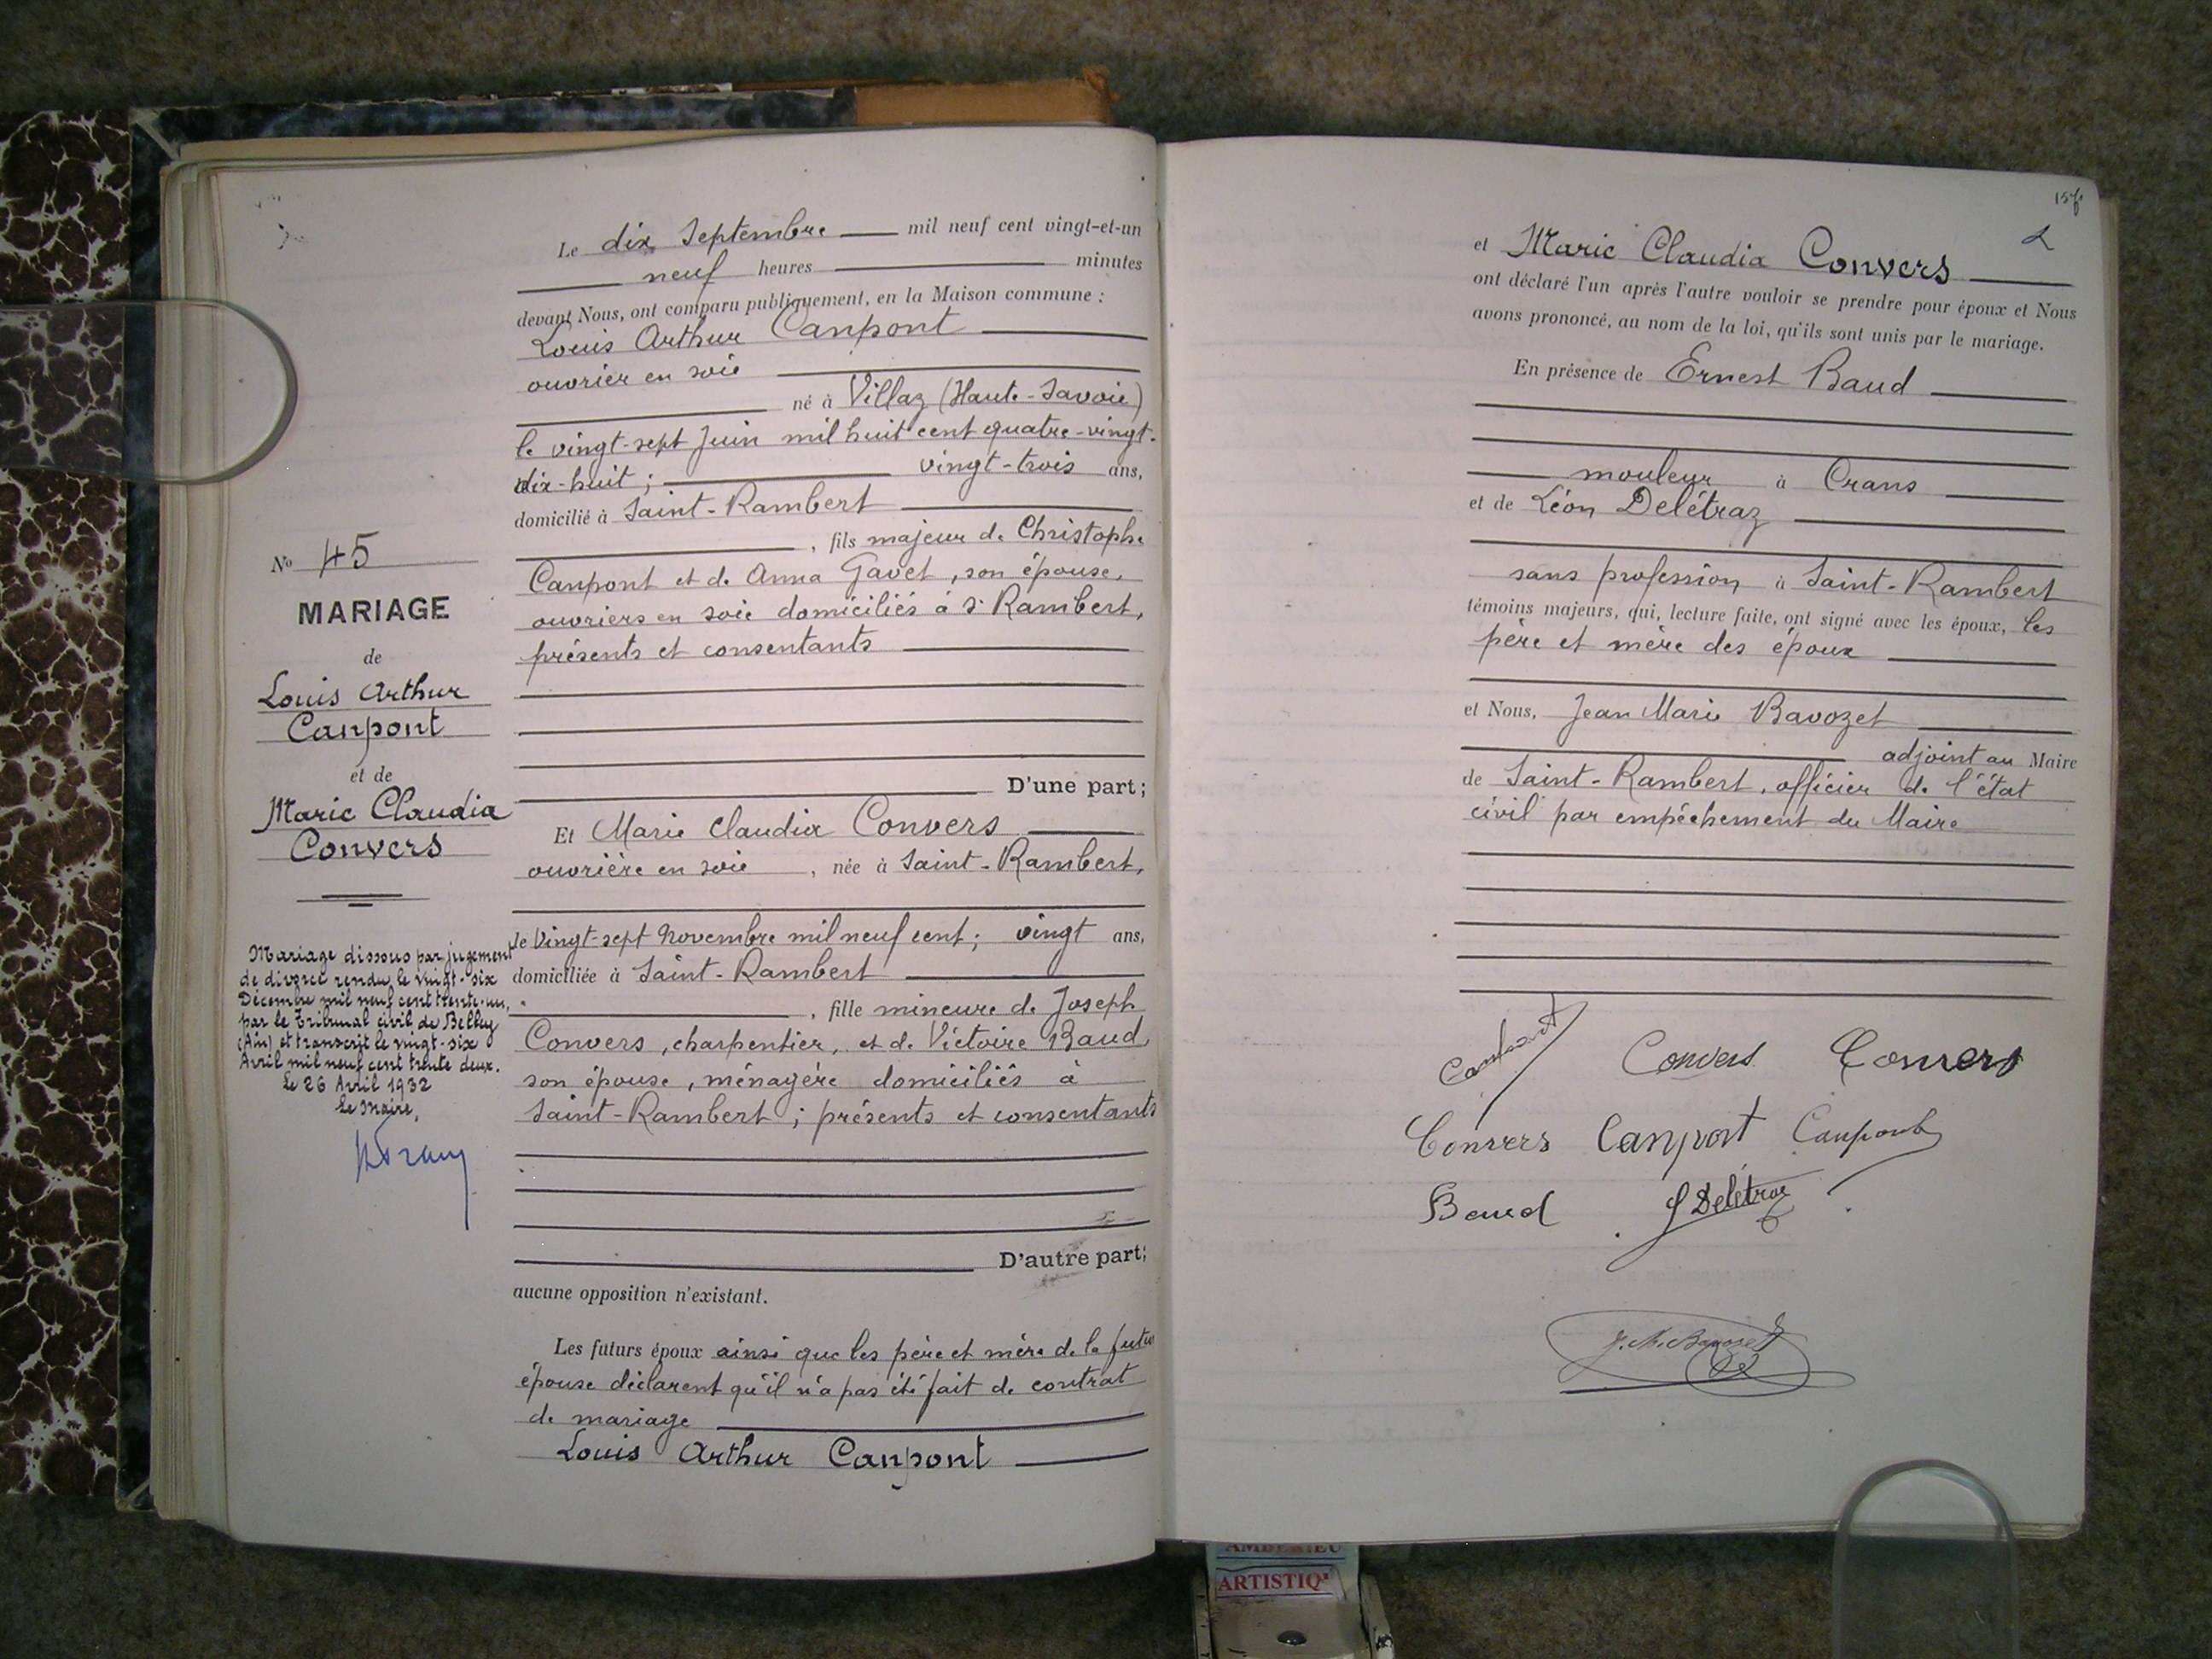 N° 45
MARIAGE
de
Louis Arthur
Canpont
et de
Marie Claudia
Convers
Mariage dissous par jugement
de divorce rendu le vingt-six
Décembre mil neuf cent trente-un,
par le Tribunal civil de Belley
(Ain) et transcrit le vingt-six
Avril mil neuf cent trente deux.
Le 26 Avril 1932
Le Maire,
Le dix Septembre mil neuf cent vingt-et-un
neuf heures minutes
devant Nous, ont comparu publiquement, en la Maison commune :
Louis Arthur Canpont
ouvrier en soie
né à Villaz (Haute-Savoie)
le vingt-sept Juin mil huit cent quatre-vingt-
dix-huit ; vingt-trois ans,
domicilié à Saint-Rambert
, fils majeur de Christophe
Canpont et de Anna Gavet, son épouse,
ouvriers en soie domiciliés à St Rambert,
présents et consentants
D'une part ;
Et Marie Claudia Convers
ouvrière en soie , née à Saint-Rambert,
le Vingt-sept Novembre mil neuf cent ; vingt ans,
domiciliée à Saint-Rambert
, fille mineure de Joseph
Convers, charpentier, et de Victoire Baud
son épouse, ménagère domiciliés à
Saint-Rambert ; présents et consentants
D'autre part ;
aucune opposition n'existant.
Les futurs époux ainsi que les père et mère de la future
épouse déclarent qu'il n'a pas été fait de contrat
de mariage
Louis Arthur Canpont
et Marie Claudia Convers
ont déclaré l'un après l'autre vouloir se prendre pour époux et Nous
avons prononcé, au nom de la loi, qu'ils sont unis par le mariage.
En présence de Ernest Baud
mouleur à Crans
et de Léon Delétraz
sans profession à Saint-Rambert
témoins majeurs, qui, lecture faite, ont signé avec les époux, les
père et mère des époux
et Nous, Jean Marie Bavozet
adjoint au Maire
de Saint-Rambert, officier de l'état
civil par empêchement du Maire
Canpont Convers Convers
Convers Canpont Canpont
Baud Delétraz
J. M. Bavozet
ARTISTIQ